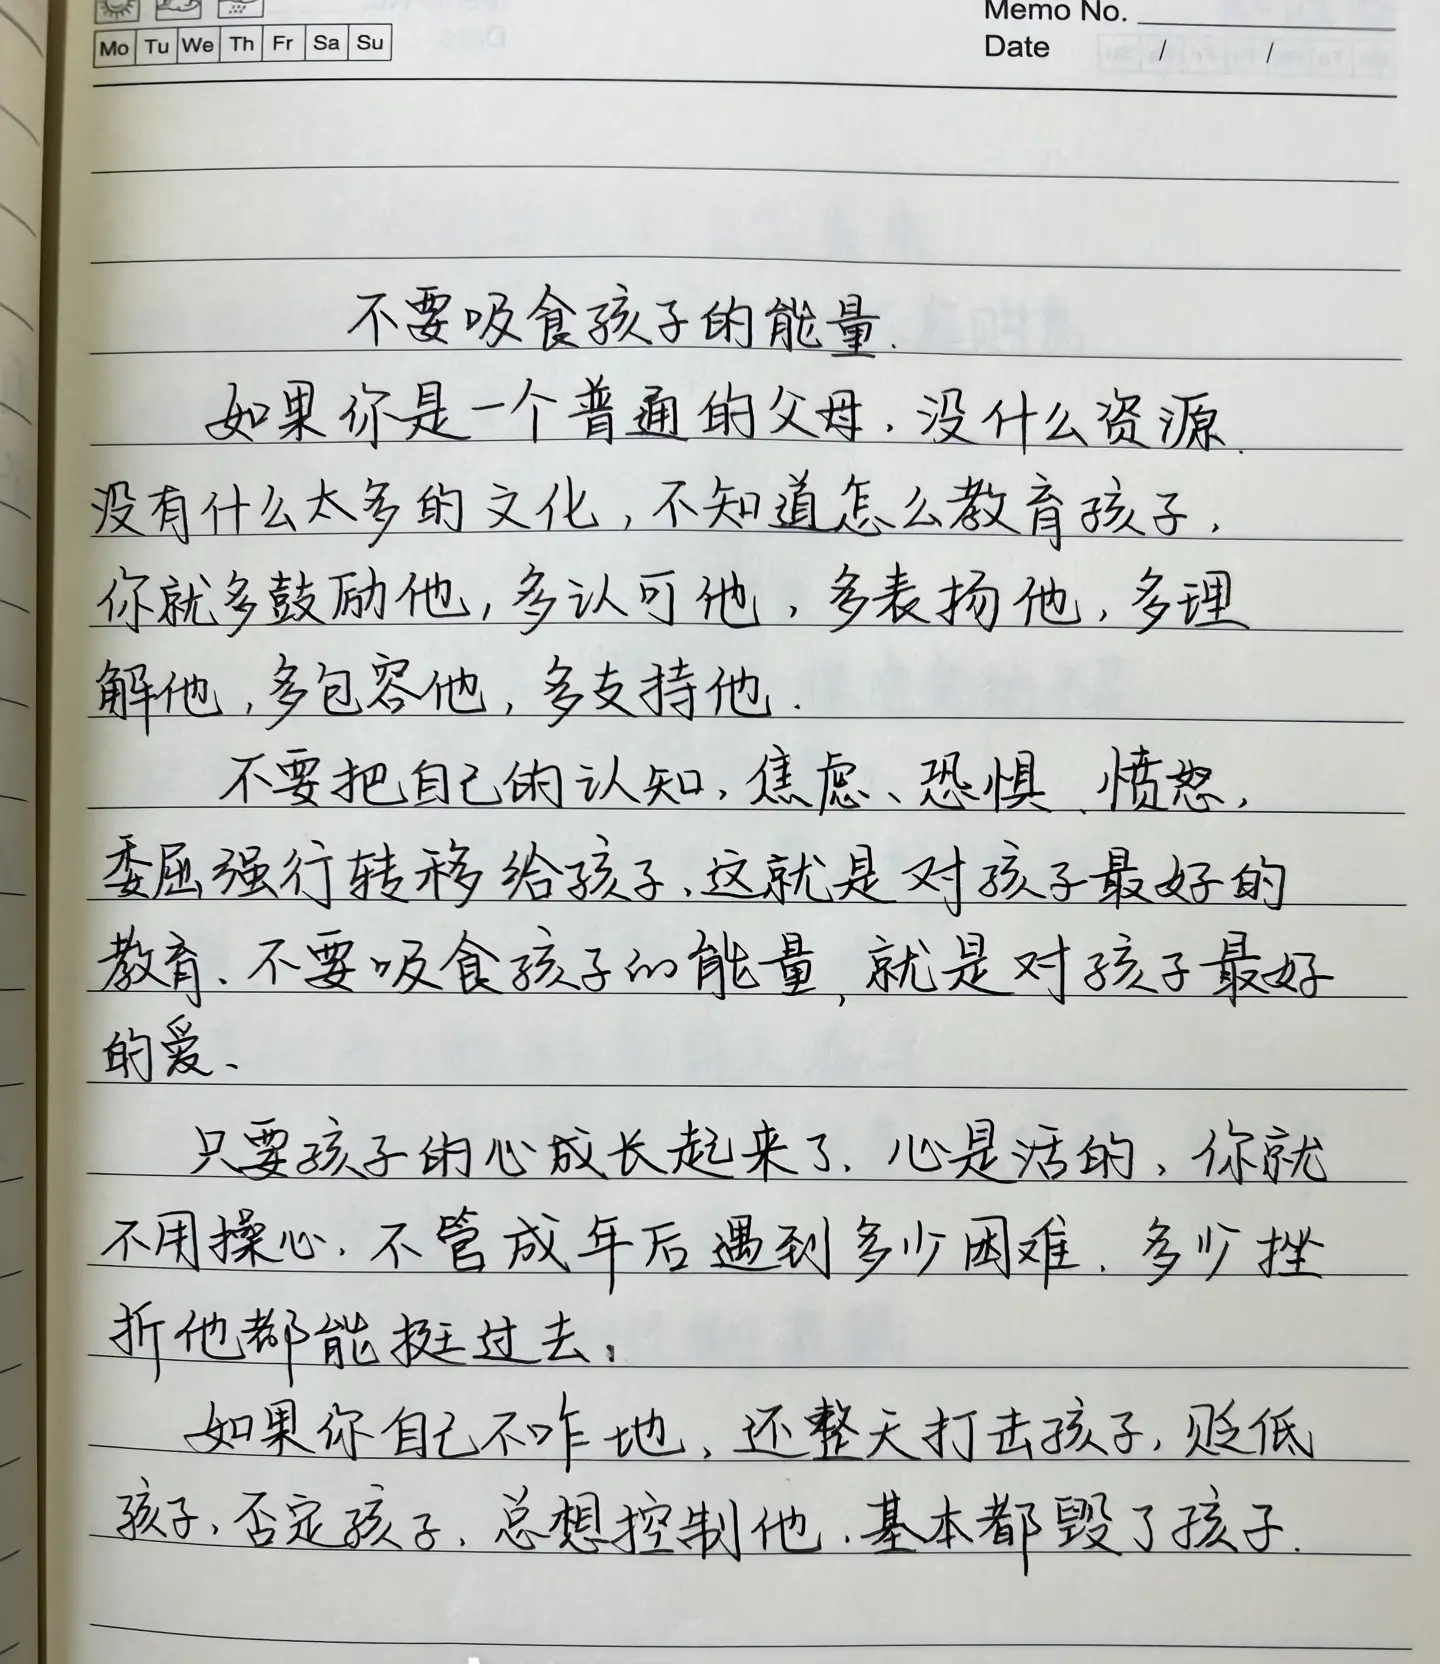 Memo No.
Mo Tu We Th Fr Sa Su
Date / /
不要吸食孩子的能量.
如果你是一个普通的父母,没什么资源.
没有什么太多的文化,不知道怎么教育孩子,
你就多鼓励他,多认可他,多表扬他,多理
解他,多包容他,多支持他.
不要把自己的认知,焦虑、恐惧、愤怒,
委屈强行转移给孩子、这就是对孩子最好的
教育、不要吸食孩子的能量,就是对孩子最好
的爱、
只要孩子的心成长起来了.心是活的,你就
不用操心.不管成年后遇到多少困难.多少挫
折他都能挺过去.
如果你自己不咋地,还整天打击孩子,贬低
孩子,否定孩子,总想控制他.基本都毁了孩子.